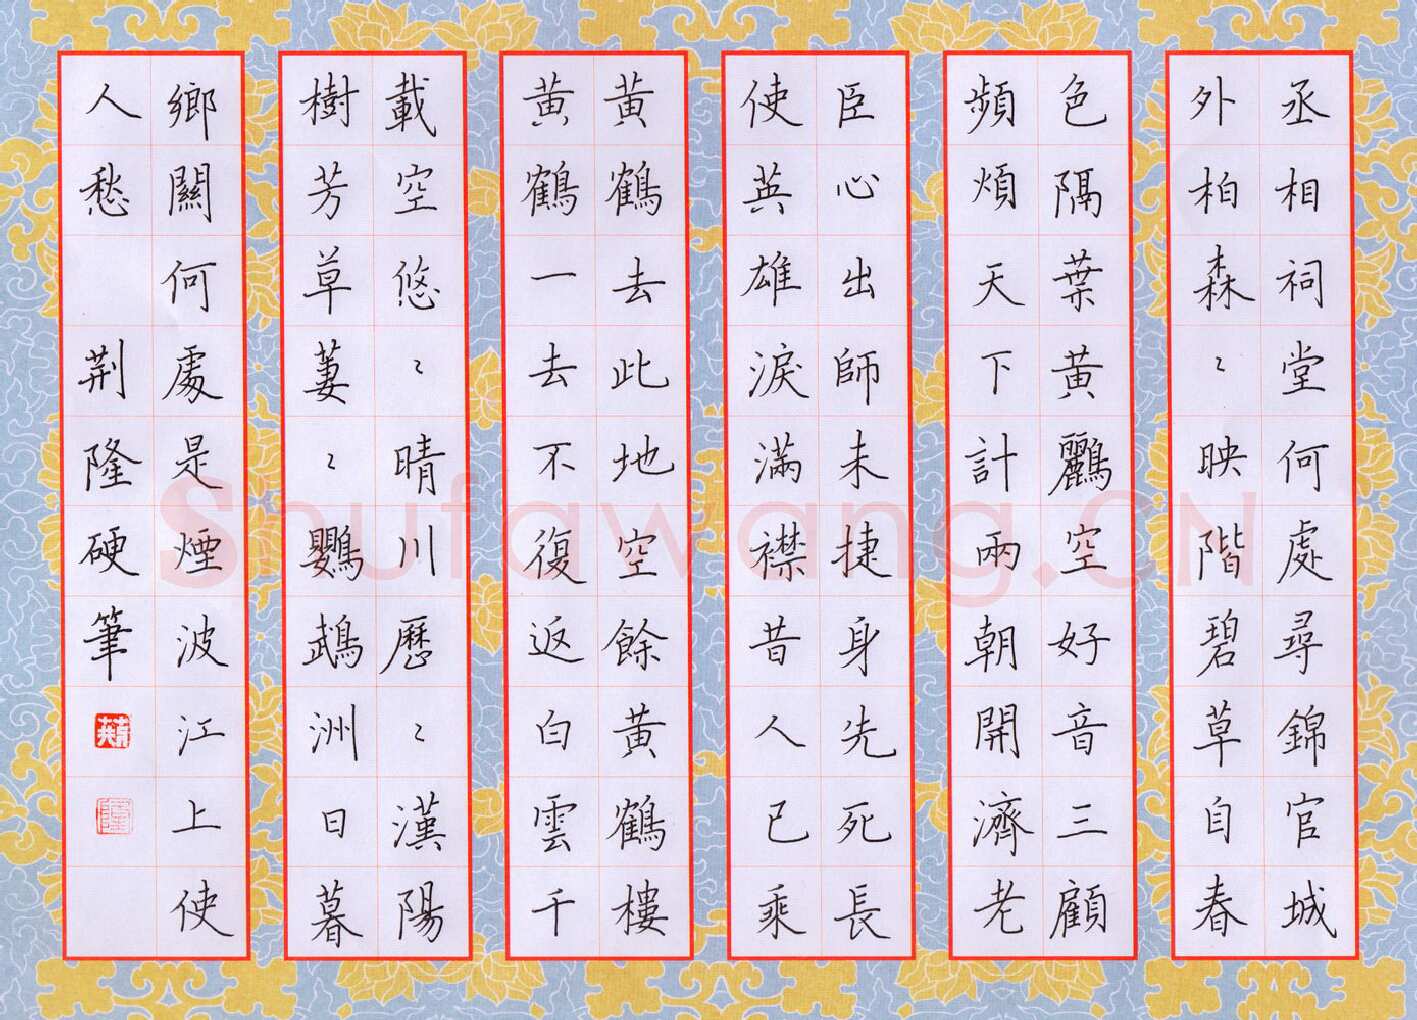 丞相祠堂何處尋錦官城
外柏森〻映階碧草自春
色隔葉黃鸝空好音三顧
頻煩天下計兩朝開濟老
臣心出師未捷身先死長
使英雄淚滿襟昔人已乘
黃鶴去此地空餘黃鶴樓
黃鶴一去不復返白雲千
載空悠〻晴川歷〻漢陽
樹芳草萋〻鸚鵡洲日暮
鄉關何處是煙波江上使
人愁 荆隆硬筆
Shufawang.CN